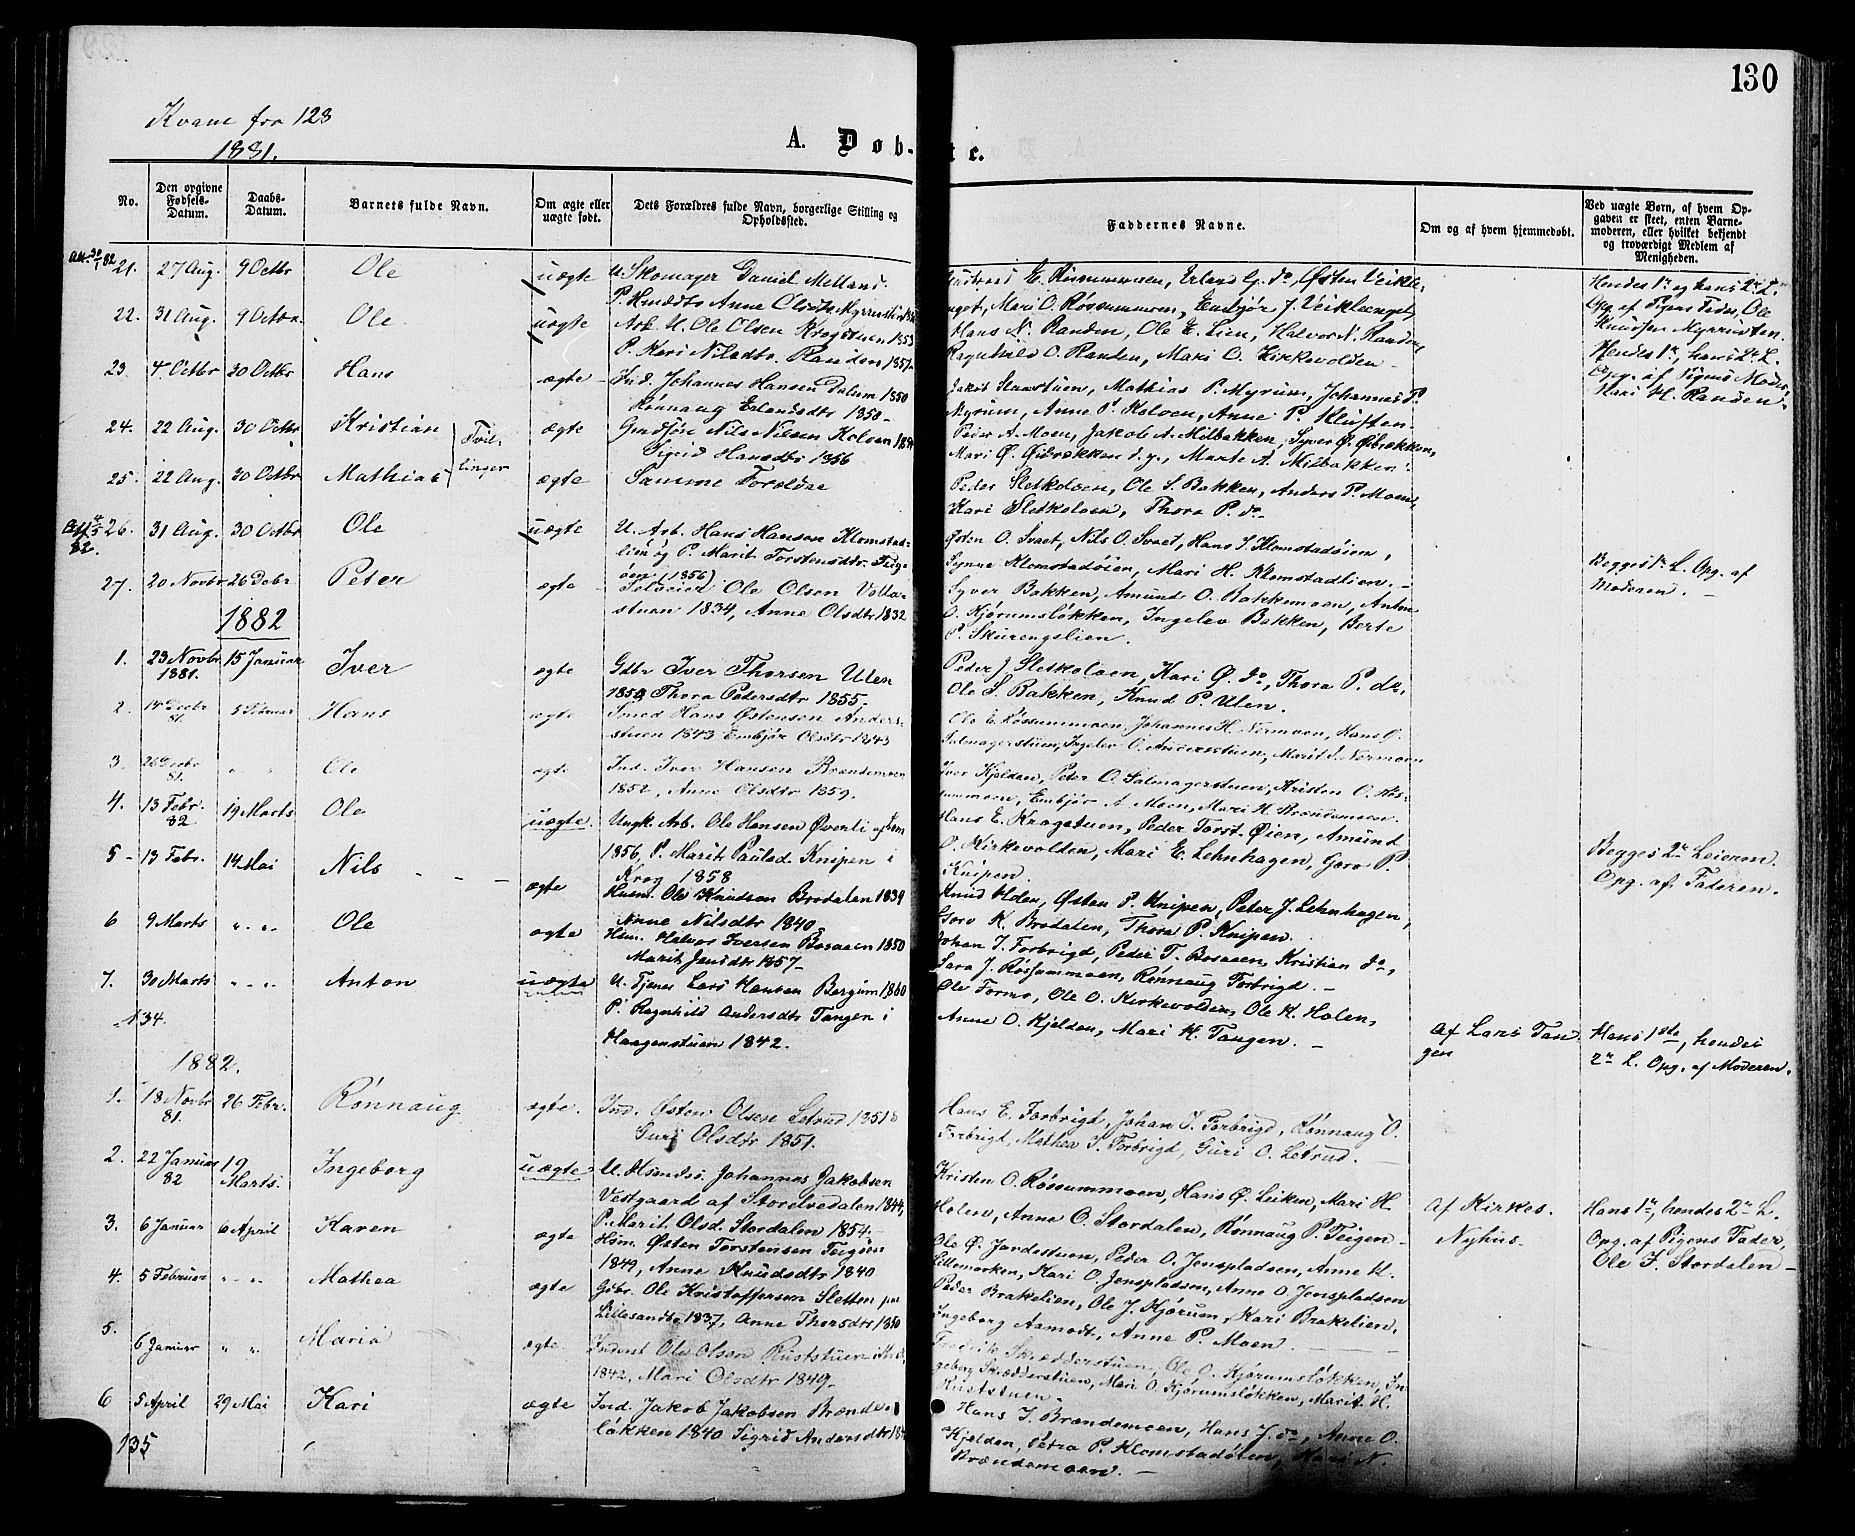 130
Kvam fra 123
1881.
A. Døb-te.
No.
Den opgivne Fødsels-Datum.
Daabs-Datum.
Barnets fulde Navn.
Om ægte eller uægte født.
Dets Forældres fulde Navn, borgerlige Stilling og Opholdssted.
Faddernes Navne.
Om og af hvem hjemmedøbt.
Ved uægte Børn, af hvem Opgaven er skeet, enten Barnemoderen, eller hvilket bekjendt og troværdigt Medlem af Menigheden.
21. 27 Aug. 9 Octbr Ole uægte U. Skomager Daniel Melland.
22. 31 Aug. 9 Octbr Ole uægte Arb. U. Ole Olsen Kragstuen 1853
P. Kari Nilsdtr. Randen 1857
Hans N. Randen, Ole E. Lien, Halvor N. Randen,
Ragnhild O. Randen, Mari O. Kirkevolden
Hendes 1ste, hans 2d L.
Opg. af Pigens Moder
Mari H. Randen
23. 4 Octbr 30 Octbr Hans ægte Ind. Johannes Hansen Dalum 1850
Rønnaug Erlandsdtr 1850
Jakob Staastuen, Mathias P. Myrum, Johannes P.
Myrum, Anne P. Kolven, Anne P. Kluften
24. 22 Aug. 30 Octbr Kristian Tvillinger ægte Nils Nilsen Kolven
Sigrid Hansdtr 1856
Peder A. Moen, Jakob A. Milbakken, Syver Ø. Øibrekken,
Mari Ø. Øibrekken d.y., Marte A. Milbakken.
25. 22 Aug. 30 Octbr Mathias ægte Samme Forældre
Peder Sletkolven, Ole S. Bakken, Anders P. Moen,
Kari Sletkolven, Thora P. do
26. 31 Aug. 30 Octbr Ole uægte U. Arb. Hans Hansen Klomstad-
lien og P. Marit Torstensdtr. Teig-
øen (1856)
Østen O. Svaet, Nils O. Svaet, Hans S. Klomstadøien,
Synne Klomstadøien, Mari H. Klomstadlien.
Begges 1ste L. Opg. af
Moderen.
27. 20 Novbr 26 Debr Peter ægte Ole Olsen Volla-
stuen 1834, Anne Olsdtr 1832
Syver Bakken, Amund O. Bakkemoen, Anton
O. Kjørumsløkken, Ingelev Bakken, Berte
P. Skurengslien.
1882
1. 23 Novbr 1881. 15 Januar Iver ægte Gdbr Iver Thorsen Ulen
1850 Thora Pedersdtr 1855
Peder J Sletkolven, Kari Ø. do, Thora P. do,
Ole S. Bakken, Knud P. Ulen.
2. 14 Decbr 81. 5 Februar Hans ægte Smed Hans Østensen Anders-
stuen 1843 Embjør Olsdtr 1843
Ole E. Røssummoen, Johannes H. Nermoen, Hans O.
Salmagerstuen, Ingelev O. Andersstuen, Marit S. Nermoen
3. 26 Decbr 81. " " Ole ægte Ind. Iver Hansen Brændemoen
1852, Anne Olsdtr 1859.
Iver Kjelden, Peter O. Salmagerstuen, Kristen O. Røs-
summoen, Embjør A. Moen, Mari H. Brændemoen.
4. 13 Febr. 82 19 Marts Ole uægte. Ungk. Arb. Ole Hansen Øverli
1856, P. Marit Paulsd. Knipen i
Krog 1858
Hans E. Kragstuen, Peder Torst. Øien, Amund
O. Kirkevolden, Mari E. Lehnhagen, Goro P.
Knipen.
Begges 2det Leierm.
Opg. af Faderen.
5 - 13 Febr. 14 Mai Nils ægte Husm. Ole Knudsen Brodalen 1839
Anne Nilsdtr 1840
Knud Ulden, Østen P. Knipen, Peter J. Lehnhagen,
Goro K. Brodalen, Thora P. Knipen.
6 9 Marts " " Ole ægte Hsm. Halvor Iversen Bosaaen 1850
Marit Jensdtr 1857
Johan I. Forbrigd, Peder T. Bosaaen, Kristian do,
Sara J. Røssummoen, Rønnaug Forbrigd.
7. 30 Marts " " Anton uægte U. Tjener Lars Hansen Bergum 1860
P. Ragnhild Andersdtr Tangen i
Haagenstuen 1842.
Ole Formo, Ole O. Kirkevolden, Ole K. Holen,
Anne O. Kjelden, Mari K. Tangen.
Af Lars Tangen
Hans 1ste, hendes
2det L. Opg. af Moderen.
134.
1882.
1. 18 Novbr 81. 26 Febr. Rønnaug ægte. Ind. Østen Olsen Letrud 1851
Guri Olsdtr 1851.
Hans E. Forbrigd, Johan I. Forbrigd, Rønnaug O.
Forbrigd, Mathea I. Forbrigd, Guri O. Letrud.
2. 22 Januar 82 19 Marts. Ingeborg uægte U. Johannes Jakobsen
Vestgaard af Storelvedalen 1844,
P. Marit Olsd. Stordalen 1854
Kristen O. Røssummoen, Hans Ø. Leiken, Mari H.
Holen, Anne O. Stordalen, Rønnaug P. Teigen
Af Kirkes.
Nyhus
Hans 1ste, hendes 2det L.
Opg. af Pigens Fader,
Ole F. Stordalen
3. 6 Januar 6 April Karen ægte Hsm. Østen Torstensen Teigøen
1849, Anne Knudsdtr 1840
Ole Ø. Jondestuen, Peder O. Jonspladsen, Anne K.
Lillemorken, Kari O. Jonspladsen, Anne O. Jonspladsen
4. 5 Februar " " Mathea ægte Gdbr. Ole Kristoffersen Sletten paa
Lillesandbo 1837, Anne Thorsdtr 1850
Peder Brakelien, Ole J. Kjørum, Kari Brakelien,
Ingeborg Aamodt, Anne P. Moen
5. 6 Januar " " Maria ægte Inderst Ole Olsen Ruststuen
1842, Mari Olsdtr 1849
Fredrik Skrædderstuen, Ole O. Kjørumsløkken, In-
geborg Skrædderstuen, Mari O. Kjørumsløkken, Marit H.
Ruststuen
6 5 April 29 Mai Kari ægte Ind. Jakob Jakobsen Brænde-
løkken 1840 Sigrid Andersdtr
Hans I. Brændemoen, Hans J. do, Anne O.
Kjelden, Petra P. Klomstadøien, Mari N.
Brændemoen.
135